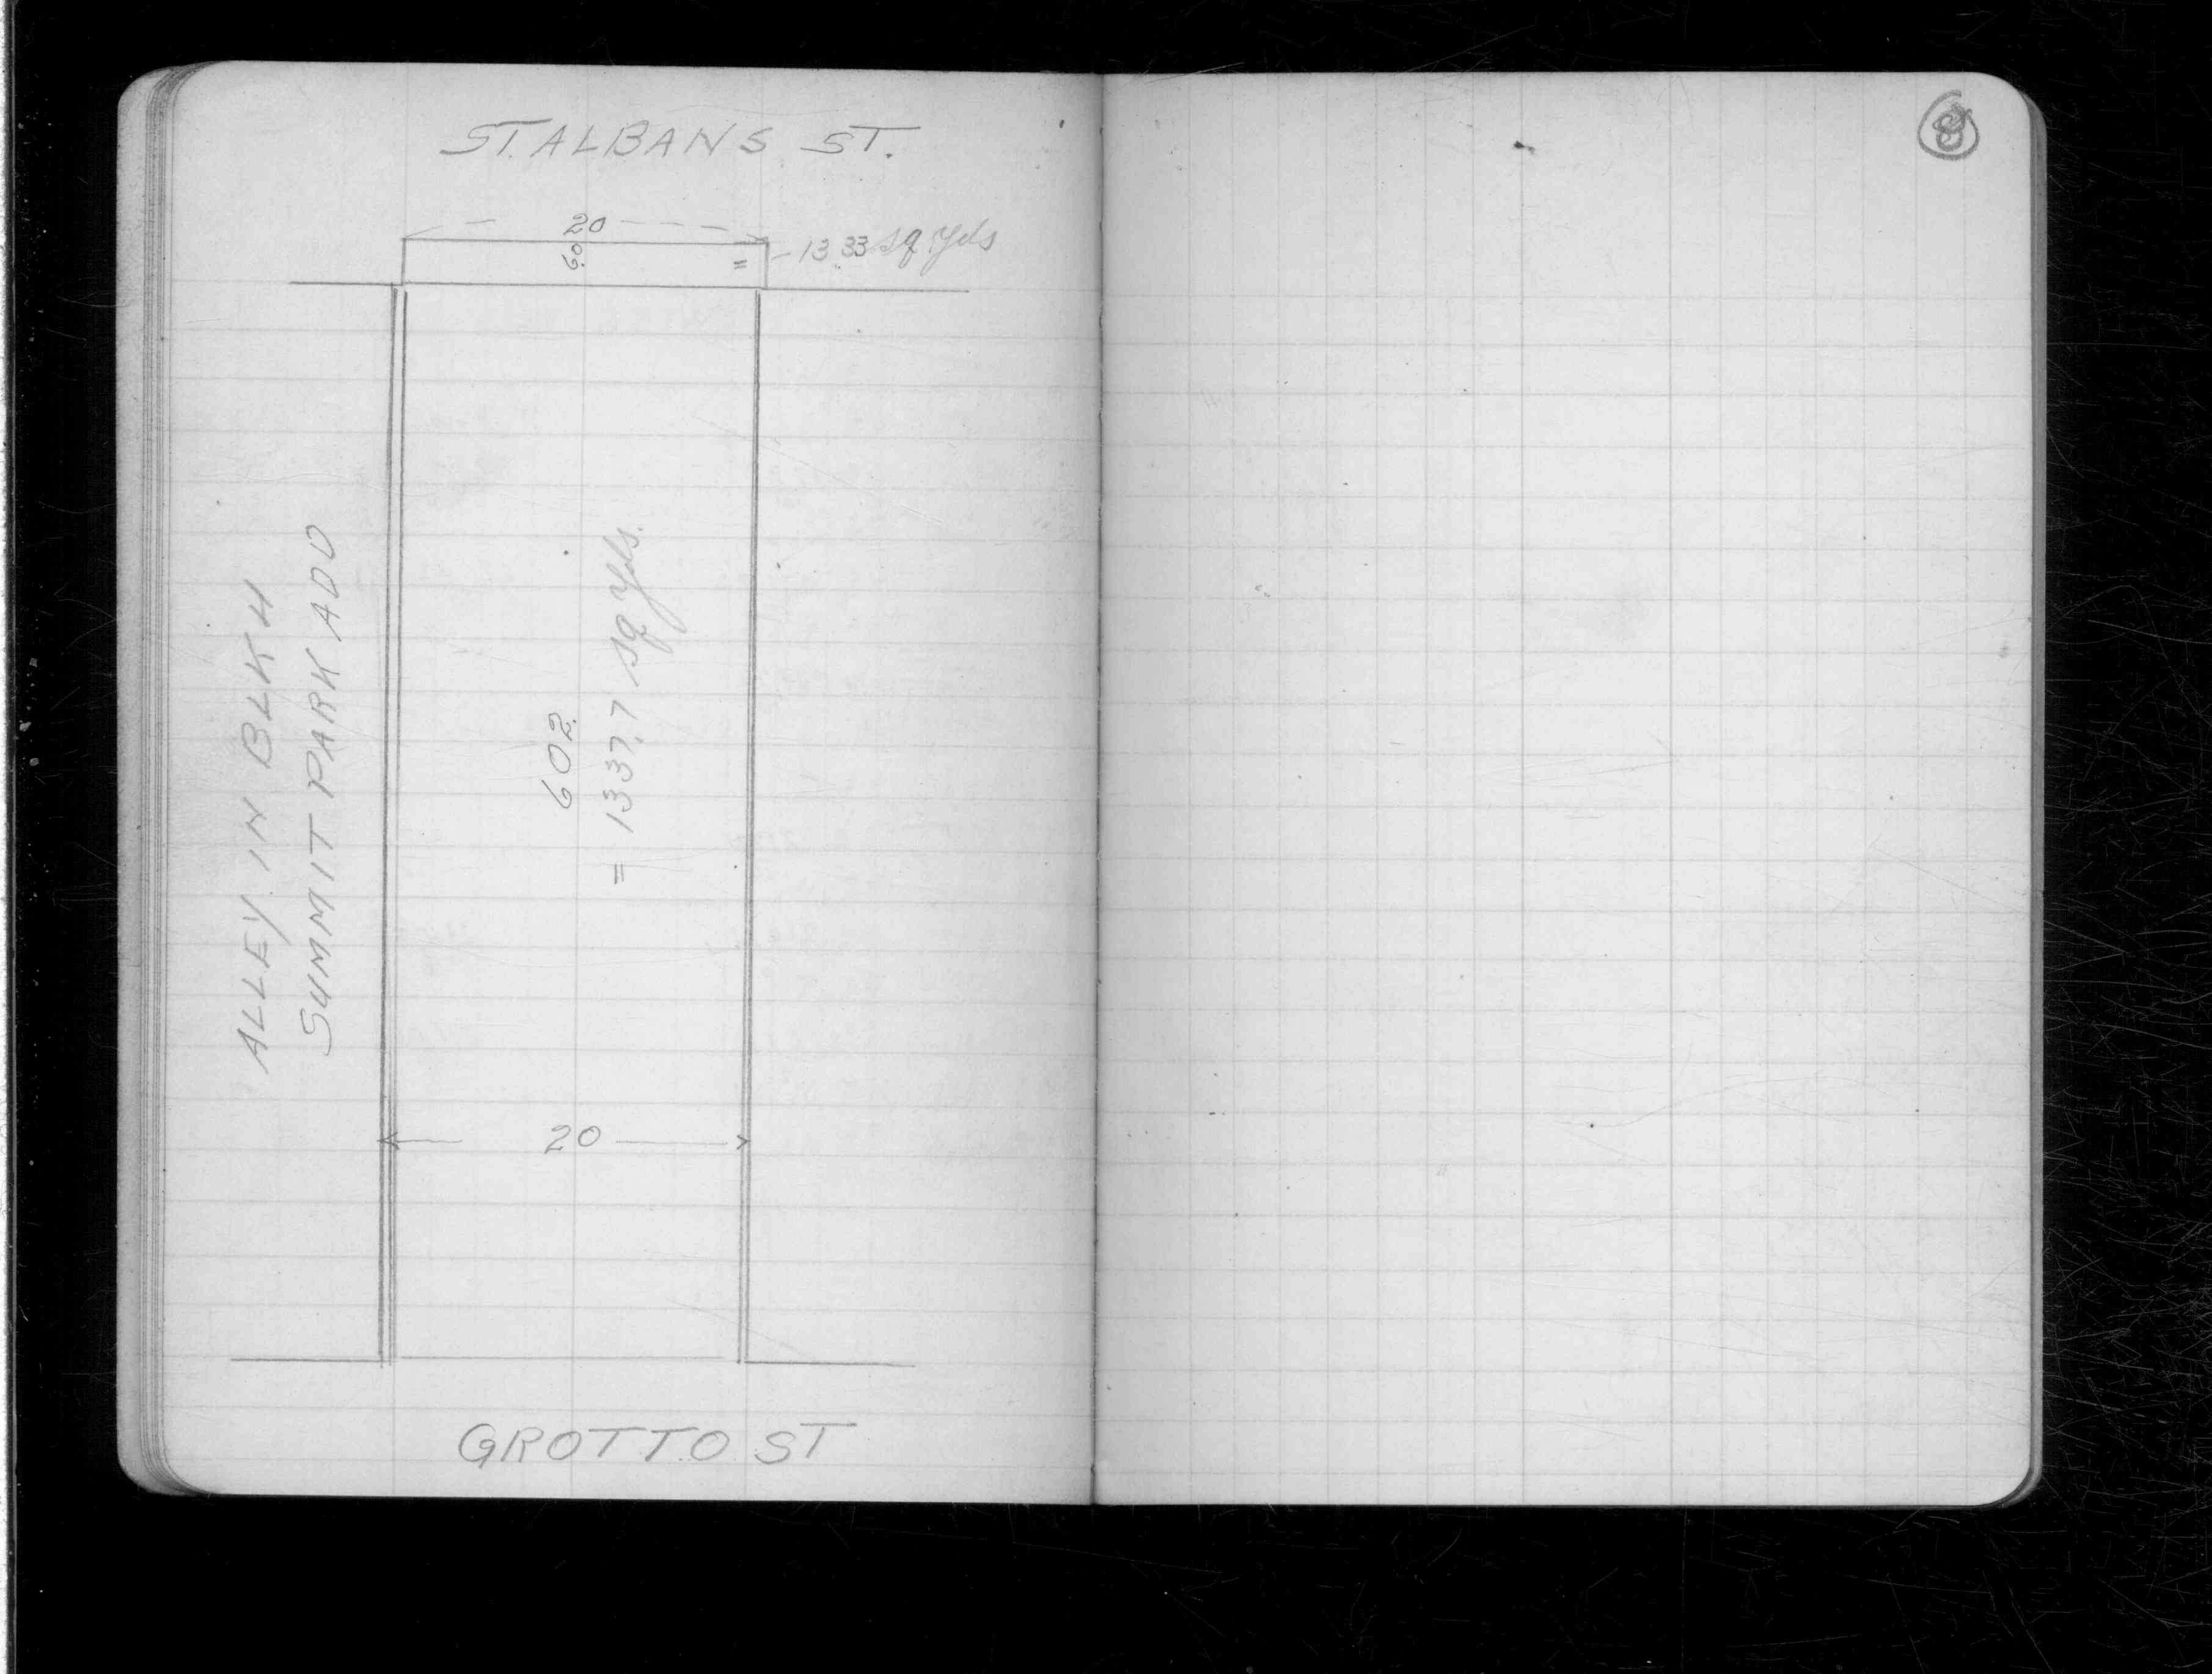 ST. ALBANS ST.
20
6.0
= 13.33 sq Yds
ALLEY IN BLK 4
SUMMIT PARK ADD
602.
= 1337.7 sq Yds.
20
GROTTO ST
8